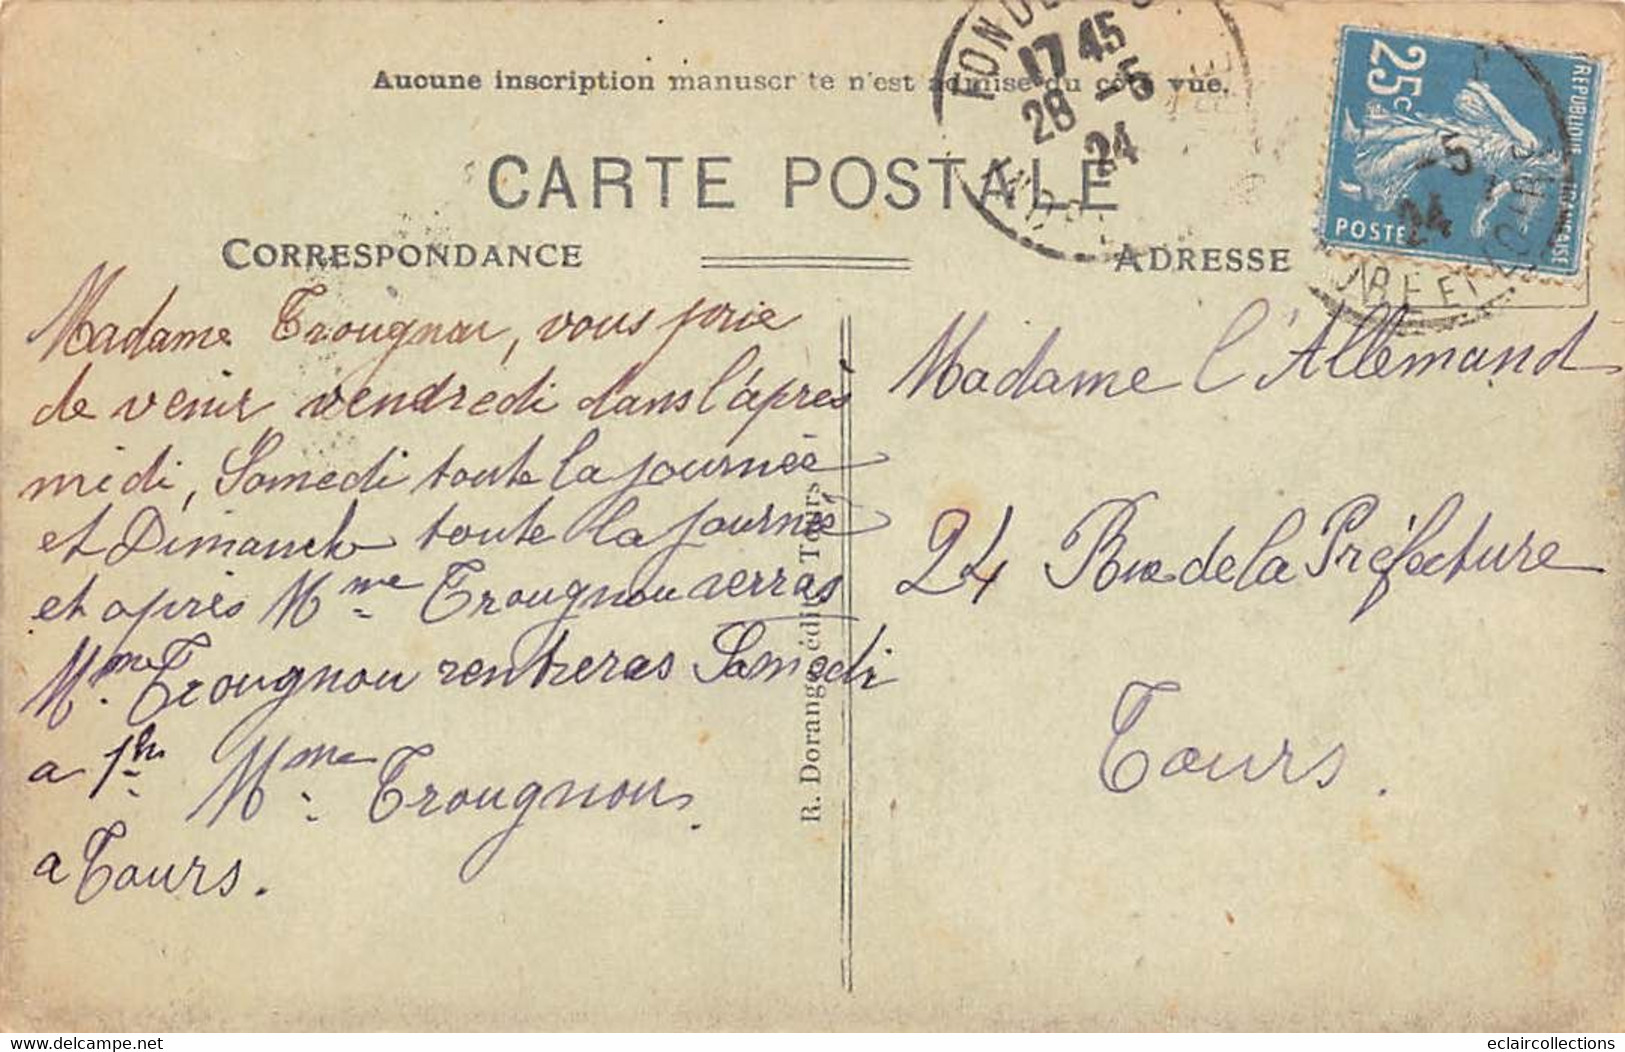 Aucune inscription manuscr te n'est admise du côté vue.
17 45
28 -5
24
CARTE POSTALE
25c
REPUBLIQUE FRANÇAISE
POSTES
-5
24
CORRESPONDANCE
ADRESSE
Madame Trougnou, vous prie
de venir vendredi dans l'après
midi, Samedi toute la journée
et Dimanche toute la journé
et après Mme Trougnou verras
Mme Trougnou rentreras Samedi
a 1h
Mme Trougnou
a Tours.
Madame l'Allemand
24 Rue de la Préfecture
Tours.
R. Dorange, édit., Tours
delcampe.net
eclaircollections